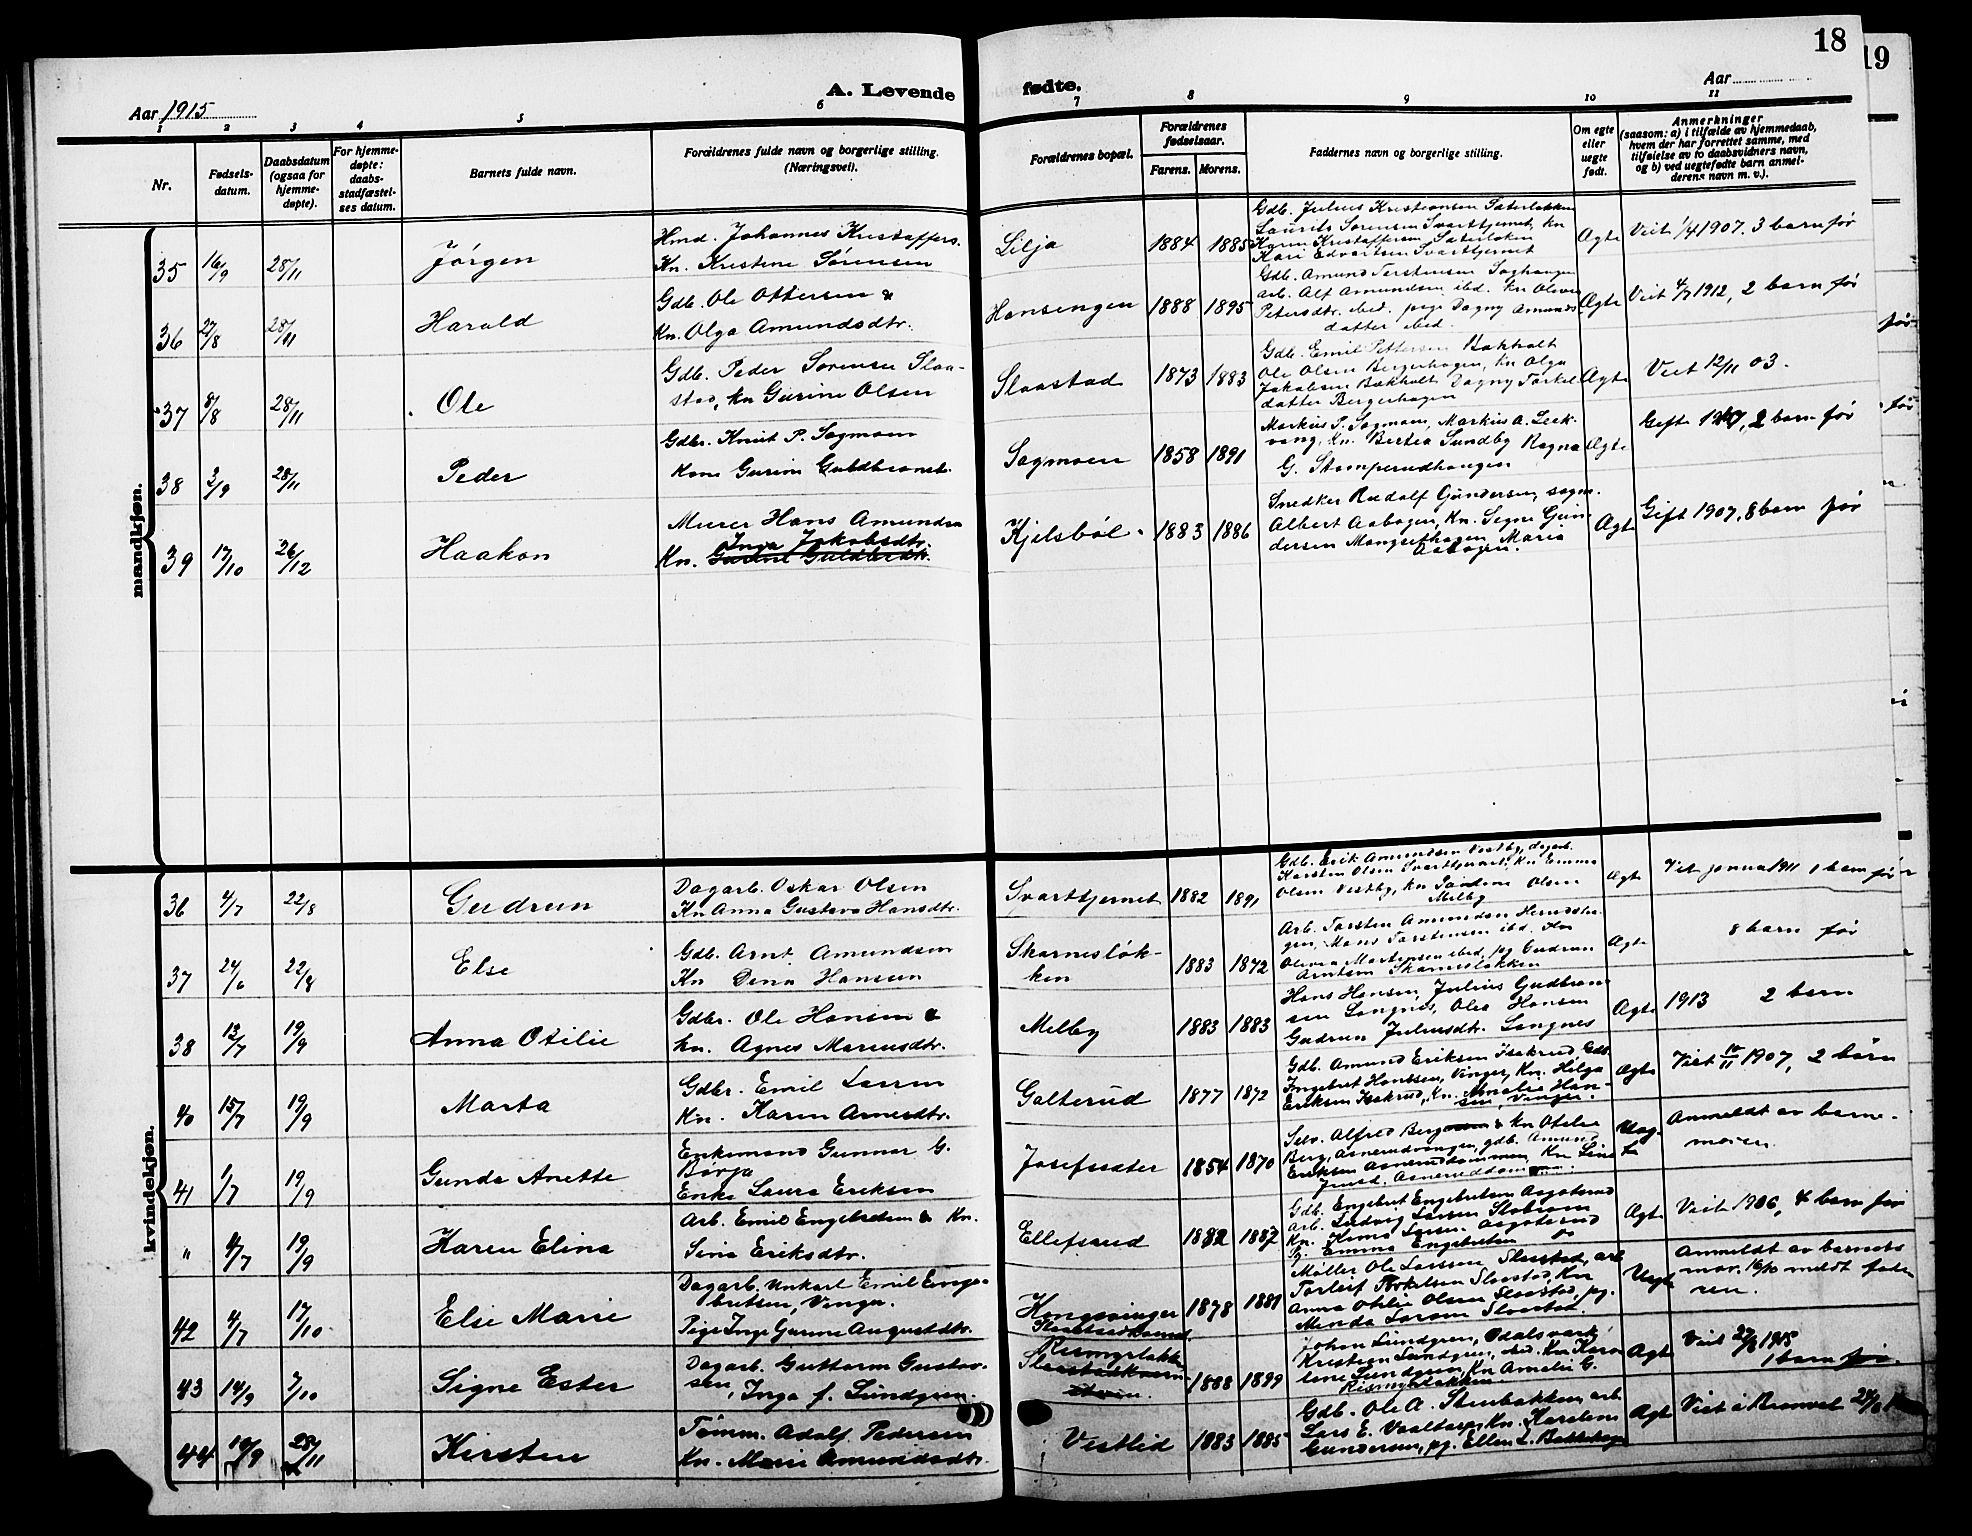 18
19
Aar 1915
A. Levende fødte.
Aar
1 2 3 4 5 6 7 8 9 10 11
Nr.
Fødsels-
datum.
Daabsdatum
(ogsaa for
hjemme-
døpte).
For hjemme-
døpte:
daabs-
stadfæstel-
ses datum.
Barnets fulde navn.
Forældrenes fulde navn og borgerlige stilling.
(Næringsvei).
Forældrenes bopæl.
Forældrenes
fødselsaar.
Farens. Morens.
Faddernes navn og borgerlige stilling.
Om egte
eller
uegte
født.
Anmerkninger
(saasom: a) i tilfælde av hjemmedaab,
hvem der har forrettet samme, med
tilføielse av to daabsvidners navn,
og b) ved uegtefødte barn anmel-
derens navn m. v.).
mandkjøn.
35 16/9 28/11 Jørgen
Hmd. Johannes Kristoffers.
Kn. Kristene Sørensen
Lilja 1884 1885
Gdb. Julius Kristiansen Sæterløkken
Laurits Sørensen Svarttjernet, kn
Karen Kristoffersen Sæterløken
Kari Edvartsen Svarttjernet
Ægte Viet 1/4 1907. 3 barn før
36 27/8 28/11 Harald
Gdb. Ole Ottersen &
Kn. Olga Amundsdtr.
Hansengen 1888 1895
Gdb. Amund Torstensen Soghaugen
arb. Alf Amundsen ibd. Kn Oleva
Petersdtr. ibd. pige Dagny Amunds
datter ibd.
Ægte Viet 4/7 1912, 2 barn før
37 8/8 28/11 Ole
Gdb. Peder Sørensen Slaa-
stad, kn Gurine Olsen
Slaastad 1873 1883
Gdb. Emil Pettersen Bakholt
Ole Olsen Bergerhagen, Kn Olga
Jakobsen Bakholt Dagny Torkel
datter Bergerhagen
Ægte Viet 12/11 03.
38 2/9 28/11 Peder
Gdbr. Knut P. Sogmoen
Kone Gurine Guldbrandsd.
Sogmoen 1858 1891
Markus P. Sogmoen, Markus A. Leek-
vang, Kn. Bertea Sundby Ragna
G. Stomperudhaugen
Ægte Gift 1907, 2 barn før
39 17/10 26/12 Haakon
Murer Hans Amundsen
Inga Jakobsdtr.
Kn. Gurine Guldbrdt.
Kjelsbøl 1883 1886
Snedker Rudolf Gundersen, sogn.
Albert Aabogen, Kn. Signe Gun
dersen Mangsethagen, Maria
Aabogen.
Ægte Gift 1907, 8 barn før
kvindekjøn.
36 4/7 22/8 Gudrun
Dagarb. Oskar Olsen
Kn Anna Gustava Hansdtr.
Svarttjernet 1882 1891
Gdb. Erik Amundsen Vestby, dagarb.
Karsten Olsen Svarttjernet, Kn Emma
Olsen Vestby, kn Olsen
Melby
Ægt Viet januar 1911 1 barn før
37 24/6 22/8 Else
Gdb. Arnt Amundsen
Kn Dina Hansen
Skarnesløk-
ken 1883 1872
Arb. Torsten Amundsen
gen, Hans Torstensen ibd. Kn
Olivia Mortensen ibd, pg Gudrun
Arntsen Skarnesløkken
Ægt 8 barn før
38 13/7 19/9 Anna Otilie
Gdbr. Ole Hansen &
kn. Agnes Mariusdtr.
Melby 1883 1883
Hans Hansen, Julius Gudbran
sen Langnes, Olea Hansen
Gudrun Juliusdtr. Langnes
Ægte 1913 2 barn
40 15/7 19/9 Marta
Gdbr. Emil Larsen
Kn. Karen Arnesdtr.
Galterud 1877 1872
Gdb. Amund Eriksen Isakrud, Gdb.
Ingebret Hansen, Vinger, Kn. Helga
Eriksen Isakrud, Kn. Amalie Han-
sen, Vinger.
Ægte Viet 10/11 1907, 2 børn
41 1/7 19/9 Gunda Anette
Enkemand Gunnar G.
Børja
Enke Laura Eriksen
Josefsæter 1854 1870
Selv. Alfred Berg & Kn Otelie
Berg, Asnerudvangen, gdb. Amund
Eriksen Asneruddammen, Kn Lina
Asneruddammen.
Uæg-
te Anmeldt av barne-
moren.
" 4/7 19/9 Karen Elina
Arb. Emil Engebretsen & Kn.
Sina Eriksdtr.
Ellefsrud 1882 1887
Gdb. Engebret Engebretsen Aagoterud
arb. Ludvig Larsen Slobraen
Kn. Larsen Aagoterud
Pg. Emma Engebretsen do
Ægt Viet 1906, 4 barn før
42 4/7 17/10 Else Marie
Dagarb. Unkarl Emil Enge-
bretsen, Vinger.
Pige Inga Gurine Augustdtr.
Kongsvinger
1878 1881
Møller Ole Larsen Slaastad, arb
Torleif Torkelsen Slaastad, Kn
Anna Otilie Olsen Slaastad, pg.
Minda Larsen Slaastad.
Uegt Anmeldt av barnets
mor. 16/10 meldt fade
ren.
43 14/9 7/10 Signe Ester
Dagarb. Guttorm Gustav-
sen, Inga f. Lundgren.
Rismyrløkken
1888 1899
Johan Lundgren, Odalsverk
Kristian Lundgren, ibd. Kn Karo
line Lundgren, Kn Amalie G.
Rismyrløkken
Ægt Viet 27/3 1915
1 barn før.
44 19/9 28/11 Kirsten
Tømm. Adolf Pedersen
Kn. Marie Amundsdtr.
Vestlid 1883 1885
Gdb. Ole A. Stenbakken, arb
Lars E. Vaaltorp, Kn. Karoline
Gundersen, pg. Ellen L. Bakkehag
Ægt Viet i Bromvet 24/6